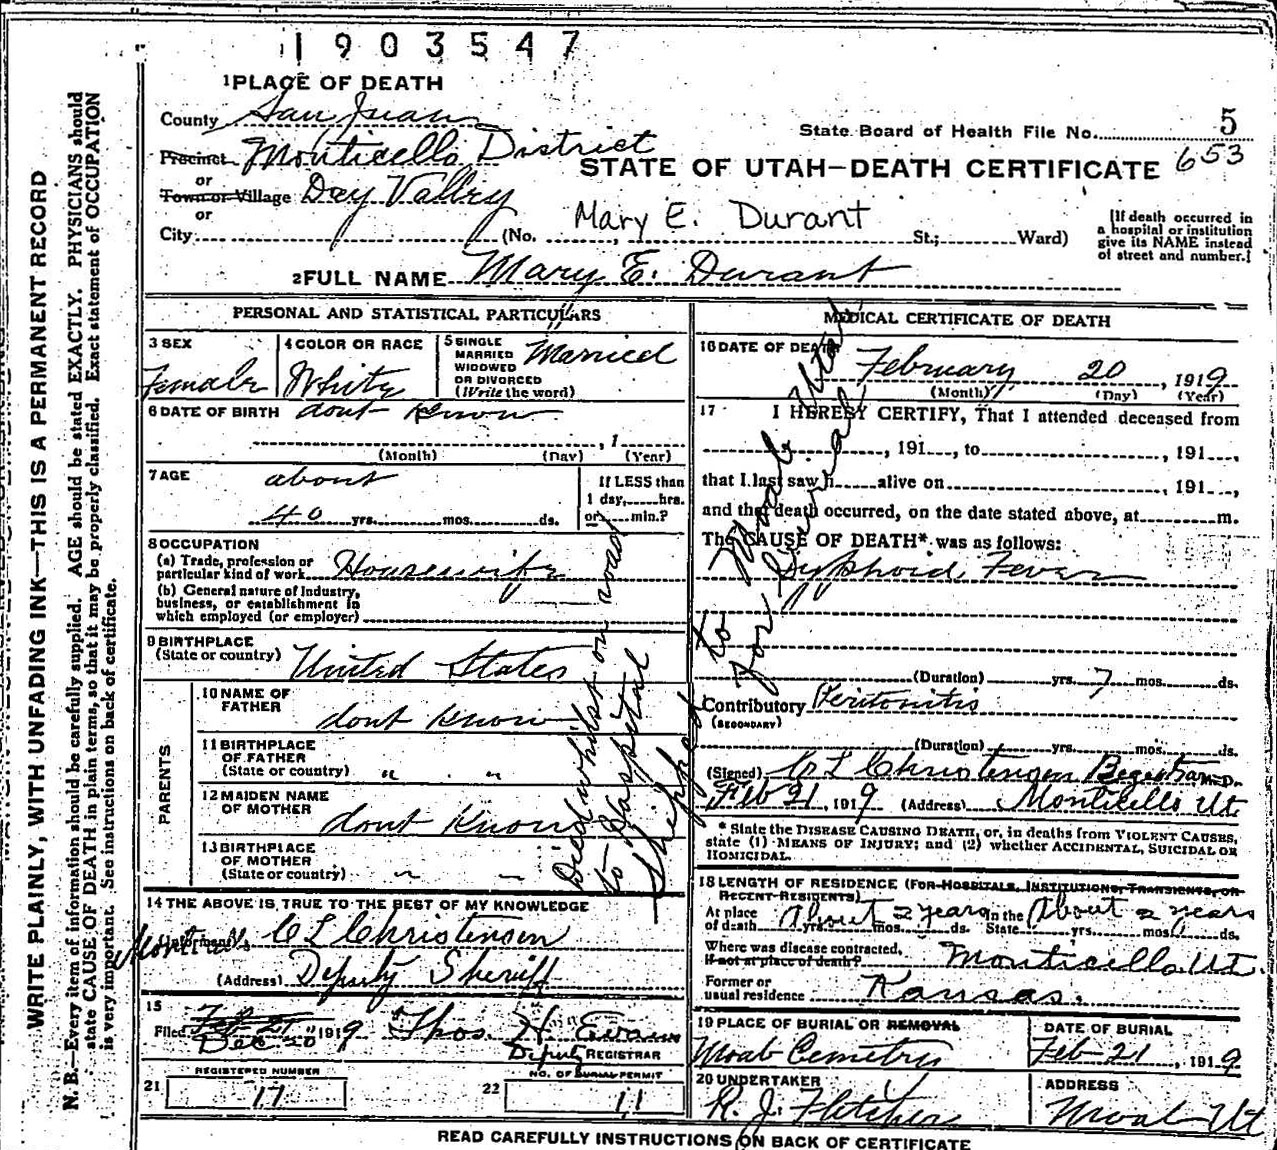 1903547
1 PLACE OF DEATH
County San Juan
State Board of Health File No. 5
653
Precinct Monticello District
STATE OF UTAH—DEATH CERTIFICATE
or
Town or Village Dry Valley
or
Mary E. Durant
City (No. , St.; Ward)
[If death occurred in
a hospital or institution
give its NAME instead
of street and number.]
2 FULL NAME Mary E. Durant
PERSONAL AND STATISTICAL PARTICULARS
3 SEX
Female
4 COLOR OR RACE
White
5 SINGLE
MARRIED
WIDOWED
OR DIVORCED
(Write the word)
Married
6 DATE OF BIRTH dont know
, 1
(Month) (Day) (Year)
7 AGE about
40 yrs. mos. ds.
If LESS than
1 day, hrs.
or min.?
8 OCCUPATION
(a) Trade, profession or
particular kind of work Housewife
(b) General nature of Industry,
business, or establishment in
which employed (or employer)
9 BIRTHPLACE
(State or country) United States
PARENTS
10 NAME OF
FATHER dont know
11 BIRTHPLACE
OF FATHER
(State or country) " "
12 MAIDEN NAME
OF MOTHER dont know
13 BIRTHPLACE
OF MOTHER
(State or country) " "
Died whilst on road
to Hospital
Shipped to Moab Utah
for Burial
14 THE ABOVE IS TRUE TO THE BEST OF MY KNOWLEDGE
(Informant) C L Christensen
(Address) Deputy Sheriff
15
Filed Feb 21 1919 Thos. H. Evans
Dec 20
Deputy REGISTRAR
REGISTERED NUMBER
21 17
NO. OF BURIAL PERMIT
22 11
MEDICAL CERTIFICATE OF DEATH
16 DATE OF DEATH
February 20, 1919
(Month) (Day) (Year)
17 I HEREBY CERTIFY, That I attended deceased from
, 191 , to , 191 ,
that I last saw h alive on , 191 ,
and that death occurred, on the date stated above, at m.
The CAUSE OF DEATH* was as follows:
Typhoid Fever
(Duration) yrs. 7 mos. ds.
Contributory Peritonitis
(SECONDARY)
(Duration) yrs. mos. ds.
(Signed) C L Christensen Registrar M.D.
Feb 21, 1919 (Address) Monticello Ut
* State the DISEASE CAUSING DEATH, or, in deaths from VIOLENT CAUSES,
state (1) MEANS OF INJURY; and (2) whether ACCIDENTAL, SUICIDAL OR
HOMICIDAL.
18 LENGTH OF RESIDENCE (FOR HOSPITALS, INSTITUTIONS, TRANSIENTS, OR
RECENT RESIDENTS)
At place
of death About 2 years yrs. mos. ds. In the State About 2 years yrs. mos. ds.
Where was disease contracted,
if not at place of death? Monticello Ut.
Former or
usual residence Kansas.
19 PLACE OF BURIAL OR REMOVAL
Moab Cemetry
DATE OF BURIAL
Feb 21, 1919
20 UNDERTAKER
R. J. Fletcher
ADDRESS
Moab Ut
READ CAREFULLY INSTRUCTIONS ON BACK OF CERTIFICATE
WRITE PLAINLY, WITH UNFADING INK—THIS IS A PERMANENT RECORD
N. B.—Every item of information should be carefully supplied. AGE should be stated EXACTLY. PHYSICIANS should
state CAUSE OF DEATH in plain terms, so that it may be properly classified. Exact statement of OCCUPATION
is very important. See instructions on back of certificate.